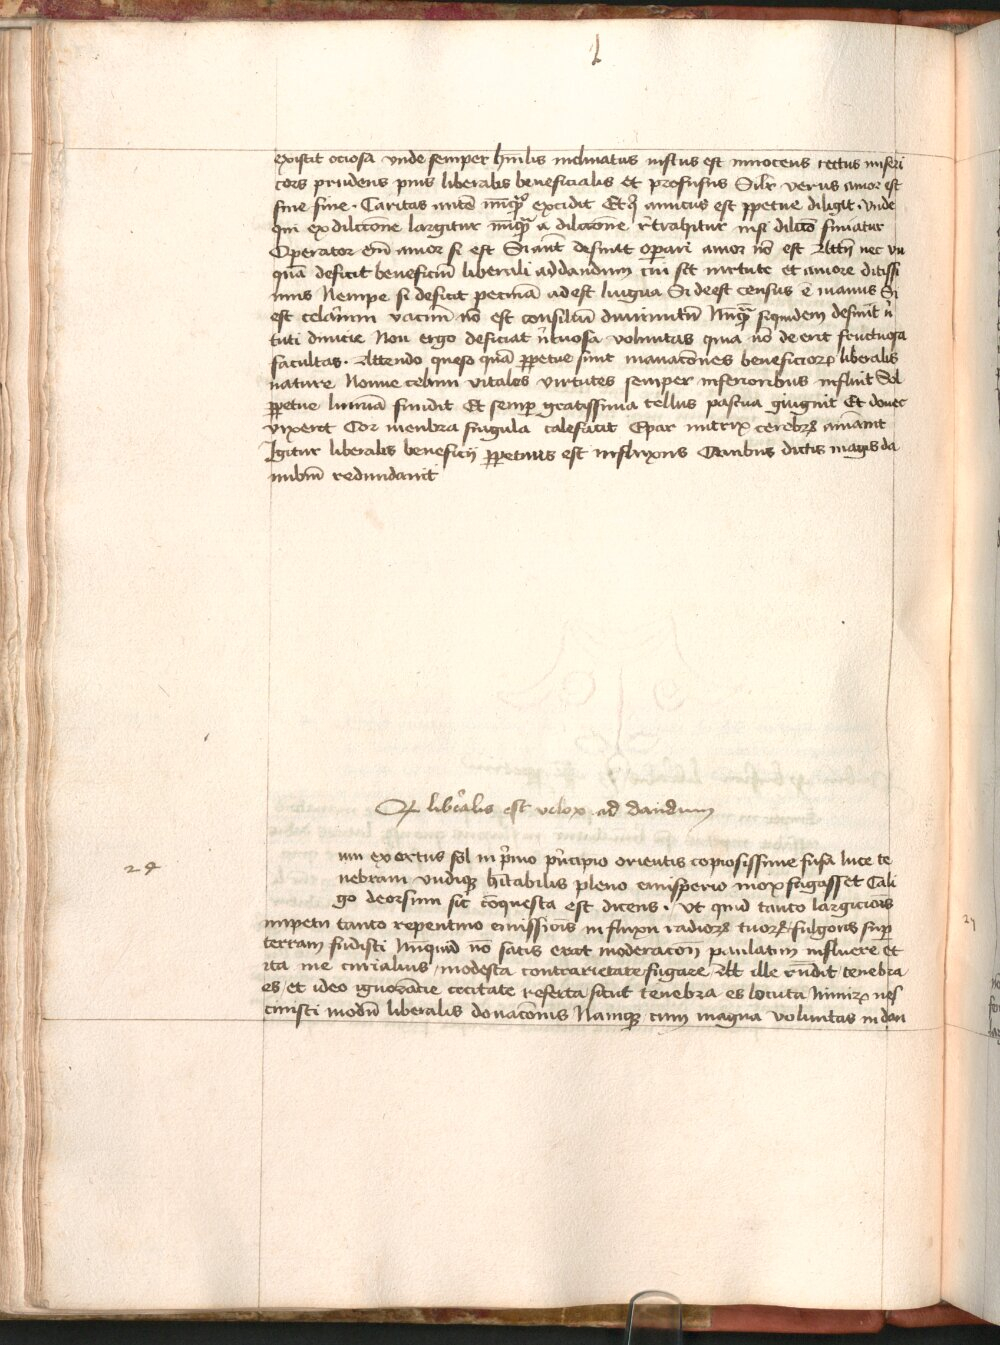 l
existit ociosa vnde semper hūilis inclinatus iustus est innocens rectus miseri
cors prudens pius liberalis beneficialis et profusus Silr verus amor est
sine fine. Caritas autē nūqͣ excidit Et qͥ amicus est ꝑpetue diligit. Vnde
qui ex dilectiōne largitur nūqͣ a dilectiōne rͤtrahitur nisi dilcō finiatur
Operator em̄ amor si est Si aūt desinat oꝑari amor nō est Attn̄ nec vn
quā deficit beneficiū liberali ad dandum cui sit virtute et amore ditissi
mus Nempe si deficit pecunia adest lingua Si deest census ē manus Si
est vacuum nō est consiliū Nūqͣ siquidem desinūt vͥ
tuti diuicie Non ergo deficiat vͥtuosa voluntas quia nō deerit fructuosa
facultas. Attendo queso quā ꝑpetue sunt manaciones beneficiorꝝ liberalis
nature Nonne celum vitales virtutes semper inferioribus influit Sol
ꝑpetue luminā fundit Et semꝑ gratissima tellus pascua gignit Et donec
vixerit Cor menbra singula calefacit Epar nutrix cerebrꝝ
Igitur liberalis beneficij ꝑpetuus est influxus Quibus dictis magis da
nubiū redundauit
Qꝫ libͤralis est velox ad dandum
24
um exortus sol in pͥmo pͥncipio orientis copiosissime fusa luce te
nebram vndiqꝫ hītabilis pleno emisperio mox fugasset Cali
go deorsum sic cōquesta est dicens. Vt quid tanto largicionis
impetu tanto repentino emissiōis influxu radiorꝝ tuorꝝ fulgoris suꝑ
terram fudisti Nūquid nō satis erat moderacōn paulatim influere et
ita me modesta contrarietate fugare At ille rn̄dit tenebra
es et ideo ignorācie cecitate referta sicut tenebra es locuta Nimirꝝ nes
ciuisti modū liberalis donacōnis Namqꝫ cum magna voluntas in dan